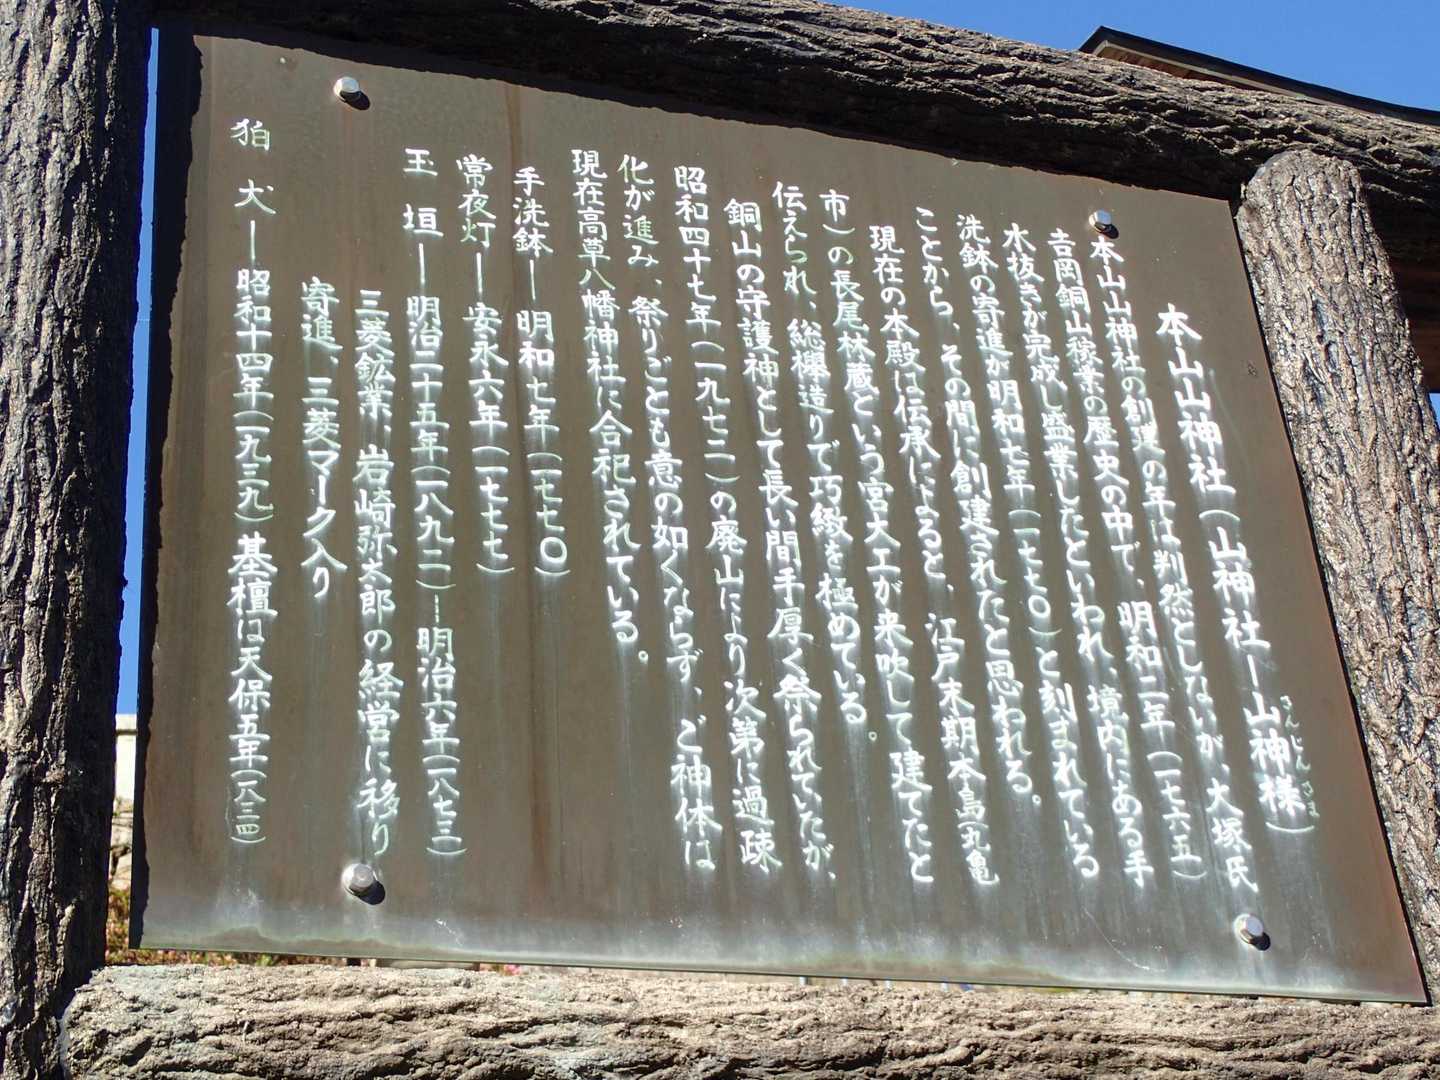 本山山神社(山神社―山神様)
さんじんさま
本山山神社の創建の年は判然としないが、大塚氏
吉岡銅山稼業の歴史の中で、明和二年(一七六五)
水抜きが完成し盛業したといわれ、境内にある手
洗鉢の寄進が明和七年(一七七〇)と刻まれている
ことから、その間に創建されたと思われる。
現在の本殿は伝承によると、江戸末期本島(丸亀
市)の長尾林蔵という宮大工が来吹して建てたと
伝えられ、総欅造りで巧緻を極めている。
銅山の守護神として長い間手厚く祭られていたが、
昭和四十七年(一九七二)の廃山により次第に過疎
化が進み、祭りごとも意の如くならず、ご神体は
現在高草八幡神社に合祀されている。
手洗鉢―明和七年(一七七〇)
常夜灯―安永六年(一七七七)
玉垣―明治二十五年(一八九二)―明治六年(一八七三)
三菱鉱業、岩崎弥太郎の経営に移り
寄進、三菱マーク入り
狛犬―昭和十四年(一九三九)基檀は天保五年(一八三四)